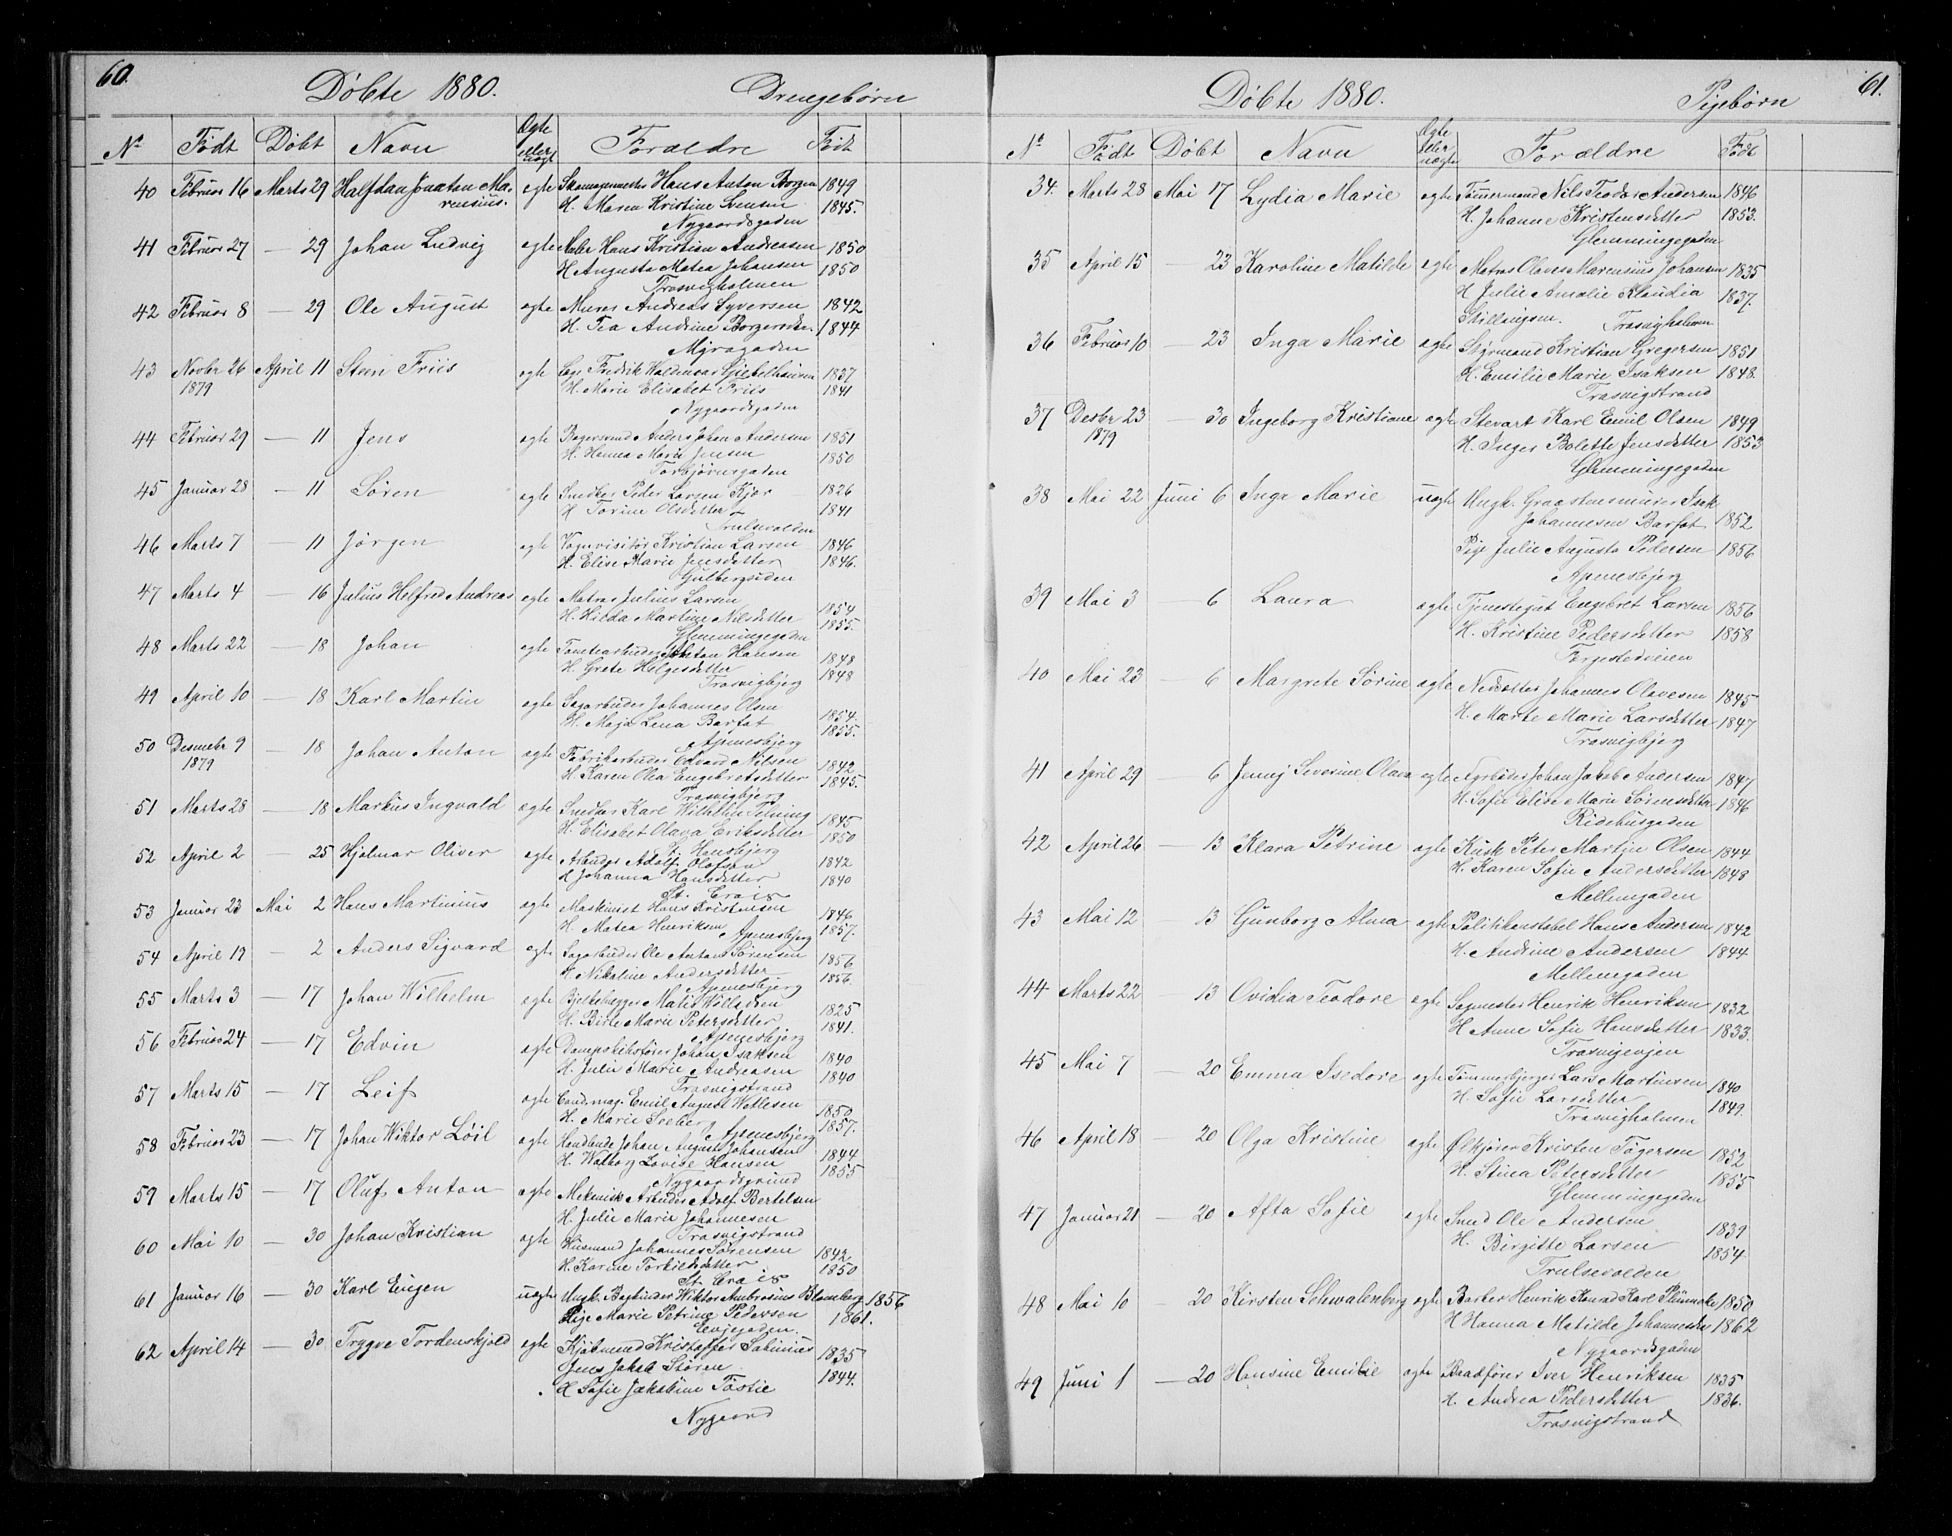 60.
Døbte 1880. Drengebørn
No Født Døbt Navn Ægte eller uægt Forældre Født
40 Februar 16 Marts 29 Halfdan Jonatan Ma- ægte Skomagermester Hans Anton Borgen 1849
rensius. H. Maren Kristine Svensen 1845.
Nygaardsgaden
41 Februar 27 — 29 Johan Ludvig ægte Maler Hans Kristian Andreasen 1850
H Augusta Matea Johansen 1850
Trosvigholmen
42 Februar 8 — 29 Ole August ægte Murer Andreas Syversen 1842
H. Tea Andrine Borgersdtr. 1844
Myragaden
43 Novbr 26 April 11 Sten Friis ægte Fredrik Waldemar 1837
1879 H. Marie Elisabet Friis 1841
Nygaardsgaden
44 Februar 29 — 11 Jens ægte Bagersvend Anders Johan Andersen 1851
H. Hanna Marie Jensen 1850
Torbjørnsgaden
45 Januar 28 — 11 Søren ægte Snedker Peder Larsen Kjær 1826
H Torine Olsdatter 1841
Trulsvolden
46 Marts 7 — 11 Jørgen ægte Vognvisitør Kristian Larsen 1846
H. Elise Marie Jensdatter 1846.
Gulbergsiden
47 Marts 4 — 16 Julius Helfred Andreas ægte Matros Julius Larsen 1854
H. Hilda Martine Nilsdatter 1855.
Glemmingegaden
48 Marts 22 — 18 Johan ægte Tomtearbeider Anton Hansen 1848
H Grete Helgesdatter 1848
Trosvigbjerg
49 April 10 — 18 Karl Martin ægte Sagarbeider Johannes Olsen 1854.
H. Maja Lena Barfot 1855.
Apenesbjerg
50 Desmebr 9 — 18 Johan Anton ægte Fabrikarbeider Edvard Nilsen 1842
1879 H Karen Olea Engebretsdatter 1845.
Trosvigbjerg
51 Marts 28 — 18 Markus Ingvald ægte Snedker Karl Wilhelm 1845
H. Elisabet Olava Eriksdatter 1850
St. Hansbjerg
52 April 2 25 Hjalmar Oliver ægte Arbeider Adolf Olafsen 1842
H Johanna Hansdatter 1840
St. Croix
53 Januar 23 Mai 2 Hans Martinius ægte Maskinist Hans Kristensen 1846
H. Matea Henriksen Apenesbjerg 1857.
54 April 19 — 2 Anders Sigvard ægte Sagarbeider Ole Antons Sørensen 1856
H. Nikoline Andersdatter 1856.
Apenesbjerg
55 Marts 3 — 17 Johan Wilhelm ægte Bjelkehugger 1825
H. Birte Marie Petersdatter 1841.
Apenesbjerg
56 Februar 24 — 17 Edvin ægte Dampskibsfører Johan Isaksen 1840
H. Julie Marie Andreasen 1840
Trosvigstrand
57 Marts 15 — 17 Leif ægte Emil August Wetlesen 1850
H. Marie Apenesbjerg 1857.
58 Februar 23 — 17 Johan Wiktor Løil ægte Johan August Johansen 1844
H. Walborg Lovise Hansen 1855
Nygaardsgrund
59 Marts 15 — 17 Oluf Anton ægte Mekanisk Arbeider Adolf Bertelsen
H. Julie Marie Johannesen
Trosvigstrand
60 Mai 10 — 30 Johan Kristian ægte Husmand Johannes Sørensen 1842
H. Karine Torkildsdatter 1850
St. Croix
61 Januar 16 — 30 Karl Eugen uægte Ungk. Bogbinder Wiktor Ambrosius Blomberg 1856
Pige Marie Petrine Pedersen 1861.
Evjegaden
62 April 14 — 30 Trygve Tordenskjold ægte Kjøbmand Kristoffer Sabinius 1835
Jens Jakob Støren 1844.
H Sofie Jakobine Tostie
Nygaard
61.
Døbte 1880. Pigebørn
No Født Døbt Navn Ægte eller uægte Forældre Født
34. Marts 28 Mai 17 Lydia Marie ægte Tømmermand Nils Teodor Andersen 1846
H. Johanne Kristensdatter 1853.
Glemmingegaden
35 April 15 — 23 Karoline Matilde ægte Matros Olaves Marensius Johansen 1835
H Julie Amalie Klaudia 1837.
Stillaugsen. Trosvigholmen
36 Februar 10 — 23 Inga Marie ægte Styrmand Kristian Gregersen 1851
H. Emilie Marie Isaksen 1848.
Trosvigstrand
37 Desbr 23 — 30 Ingeborg Kristiane ægte Stevart Karl Emil Olsen 1849
1879 H. Inger Bolette Jensdatter 1853
Glemmingegaden
38 Mai 22 Juni 6 Inga Marie uægte Ungk. Graastensmurer Isak
Johannesen Barfot 1852
Pige Julie Augusta Pedersen 1856
Apenesbjerg
39 Mai 3 — 6 Laura ægte Tjenestegut Engebret Larsen 1856
H. Kristine Pedersdatter 1858
Færgestedveien
40 Mai 23 — 6 Margrete Sørine ægte Nedsætter Johannes Olavesen 1845
H. Marte Marie Larsdatter 1847
Trosvigbjerg
41 April 29 — 6 Jenny Severine Olava ægte Johan Jakob Andersen 1847
H. Sofie Elise Marie Sørensdatter 1846
Ridehusgaden
42 April 26 — 13 Klara Petrine ægte Kusk Peter Martin Olsen 1844
H. Karen Sofie Andersdatter 1848
Mellemgaden
43 Mai 12 — 13 Gunborg Alma ægte Politikonstabel Hans Andersen 1842
H. Andrine Andersen 1844
Mellemgaden
44 Marts 22 — 13 Ovidia Teodore ægte Sagmester Henrik Henriksen 1832
H Anne Sofie Hansdatter 1833.
Trosvigveien
45 Mai 7 — 20 Emma Isedore ægte Lars Martinsen 1840
H. Sofie Larsdatter 1849.
Trosvigholmen
46 April 18 — 20 Olga Kristine ægte Ølkjører Kristen Tøgersen 1852
H. Stina Petersdatter 1855
Glemmingegaden
47 Januar 21 — 20 Asta Sofie ægte Smed Ole Andersen 1839
H. Birgitte Larsen 1854
Trulsevolden
48 Mai 10 — 20 Kirsten Schwalenberg ægte Barber Henrik Konrad Karl 1850
H Hanna Matilde Johannesdtr 1862
Nygaardsgaden
49 Juni 1 — 20 Hansine Emilie ægte Baadfører Iver Henriksen 1835
H. Andrea Pedersdatter 1836.
Trosvigstrand